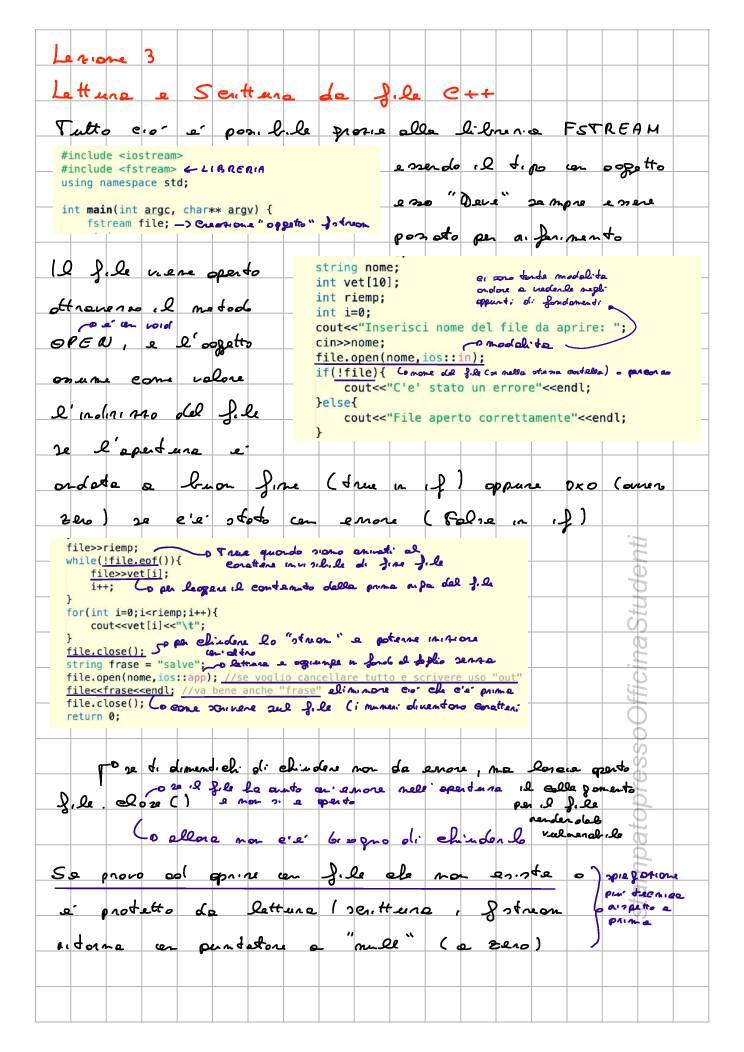 Lezione 3
Lettura e Scrittura da file C++
Tutto ciò è possibile grazie alla libreria FSTREAM
#include <iostream>
#include <fstream> ← LIBRERIA
using namespace std;
int main(int argc, char** argv) {
fstream file; → Creazione "oggetto" fstream
essendo il tipo un oggetto
esso "Deve" sempre essere
passato per riferimento
Il file viene aperto
attraverso il metodo
è un void
OPEN, e l'oggetto
assume come valore
l'indirizzo del file
se l'apertura è
string nome;
int vet[10];
int riemp;
int i=0;
cout<<"Inserisci nome del file da aprire: ";
cin>>nome;
file.open(nome,ios::in);
if(!file){
cout<<"C'e' stato un errore"<<endl;
}else{
cout<<"File aperto correttamente"<<endl;
}
ci sono tante modalità
andare a vederle negli
appunti di fondamenti
modalità
nome del file (se nella stessa cartella) o percorso
andata a buon fine (true in if) oppure 0x0 (ovvero
zero) se c'è stato un errore (False in if)
file>>riemp;
while(!file.eof()){
file>>vet[i];
i++;
}
for(int i=0;i<riemp;i++){
cout<<vet[i]<<"\t";
}
file.close();
string frase = "salve";
file.open(nome,ios::app); //se voglio cancellare tutto e scrivere uso "out"
file<<frase<<endl; //va bene anche "frase"
file.close();
return 0;
True quando siamo arrivati al
carattere invisibile di fine file
per leggere il contenuto della prima riga del file
per chiudere lo "stream" e poterne iniziare
un'altro
lettura e aggiunge in fondo al foglio senza
eliminare ciò che c'è prima
come scrivere sul file (i numeri diventano caratteri
se ti dimentichi di chiudere non da errore, ma lascia aperto
il collegamento
per il file
rendendolo
vulnerabile
file.close()
se il file ha avuto un'errore nell'apertura
e non si è aperto
allora non c'è bisogno di chiuderlo
Se provo ad aprire un file che non esiste o
è protetto da lettura/scrittura, fstream
ritorna un puntatore a "null" (a zero)
spiegazione
più tecnica
rispetto a
prima
stampatopressoOfficinaStudenti